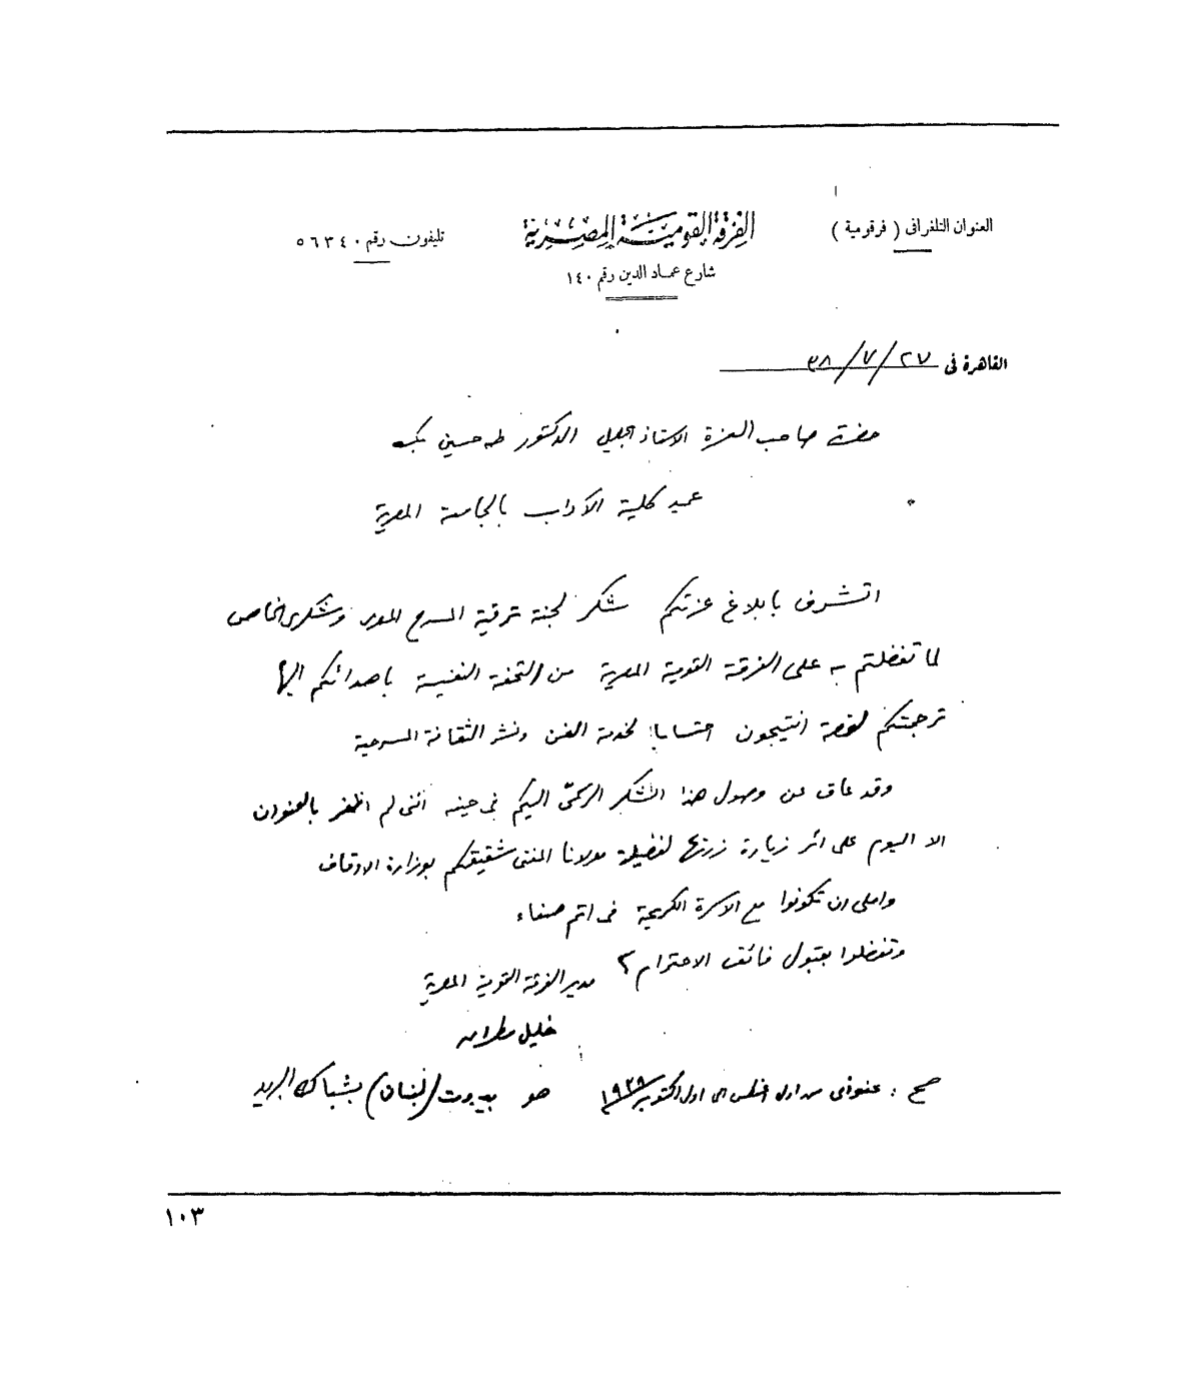 العنوان التلغرافى ( فرقومية )
الفرقة القومية المصرية
تليفون رقم ٥٦٣٤٠
شارع عماد الدين رقم ١٤٠
القاهرة فى ٢٧/٧/٣٨
حضرة صاحب العزة الاستاذ الجليل الدكتور طه حسين بك
عميد كلية الآداب بالجامعة المصرية
اتشرف بابلاغ عزتكم شكر لجنة ترقية المسرح المصرى وشكرى الخاص
لما تفضلتم به على الفرقة القومية المصرية من التحفة النفيسة باهدائكم اليها
ترجمتكم لقصة انتيجون احتسابا لخدمة الفن ونشر الثقافة المسرحية
وقد عاق عن وصول هذا الشكر اليكم فى حينه أننى لم اظفر بالعنوان
الا اليوم على اثر زيارة زرتها لفضيلة مولانا المفتى شقيقكم بوزارة الاوقاف
واملى ان تكونوا مع الاسرة الكريمة فى اتم صفاء
وتفضلوا بقبول فائق الاحترام
مدير الفرقة القومية المصرية
خليل مطران
صح : عنوانى من اول اغسطس الى اول اكتوبر هو بيروت (لبنان) بشباك البريد
١٠٣